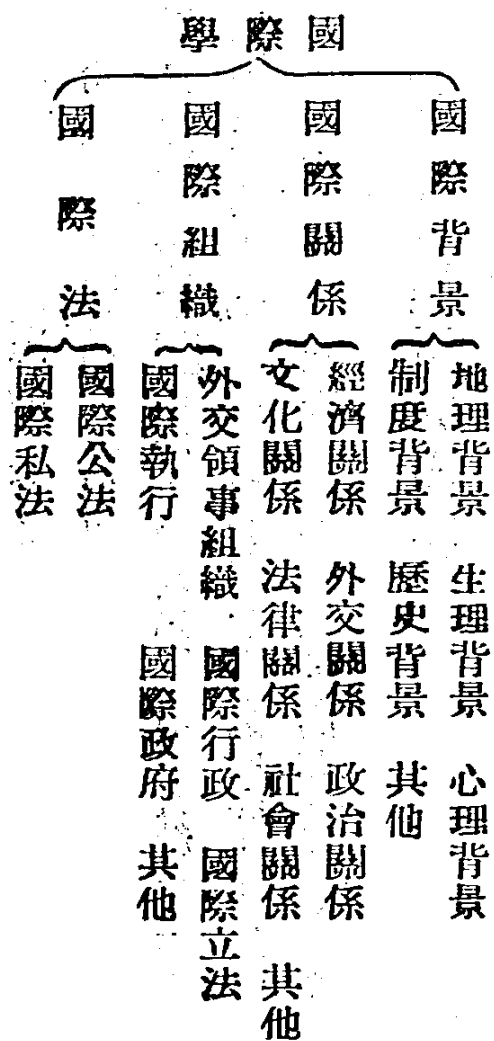 國際學
國際背景
地理背景 生理背景 心理背景
制度背景 歷史背景 其他
國際關係
經濟關係 外交關係 政治關係
文化關係 法律關係 社會關係 其他
國際組織
外交領事組織 國際行政 國際立法
國際執行 國際政府 其他
國際法
國際公法
國際私法